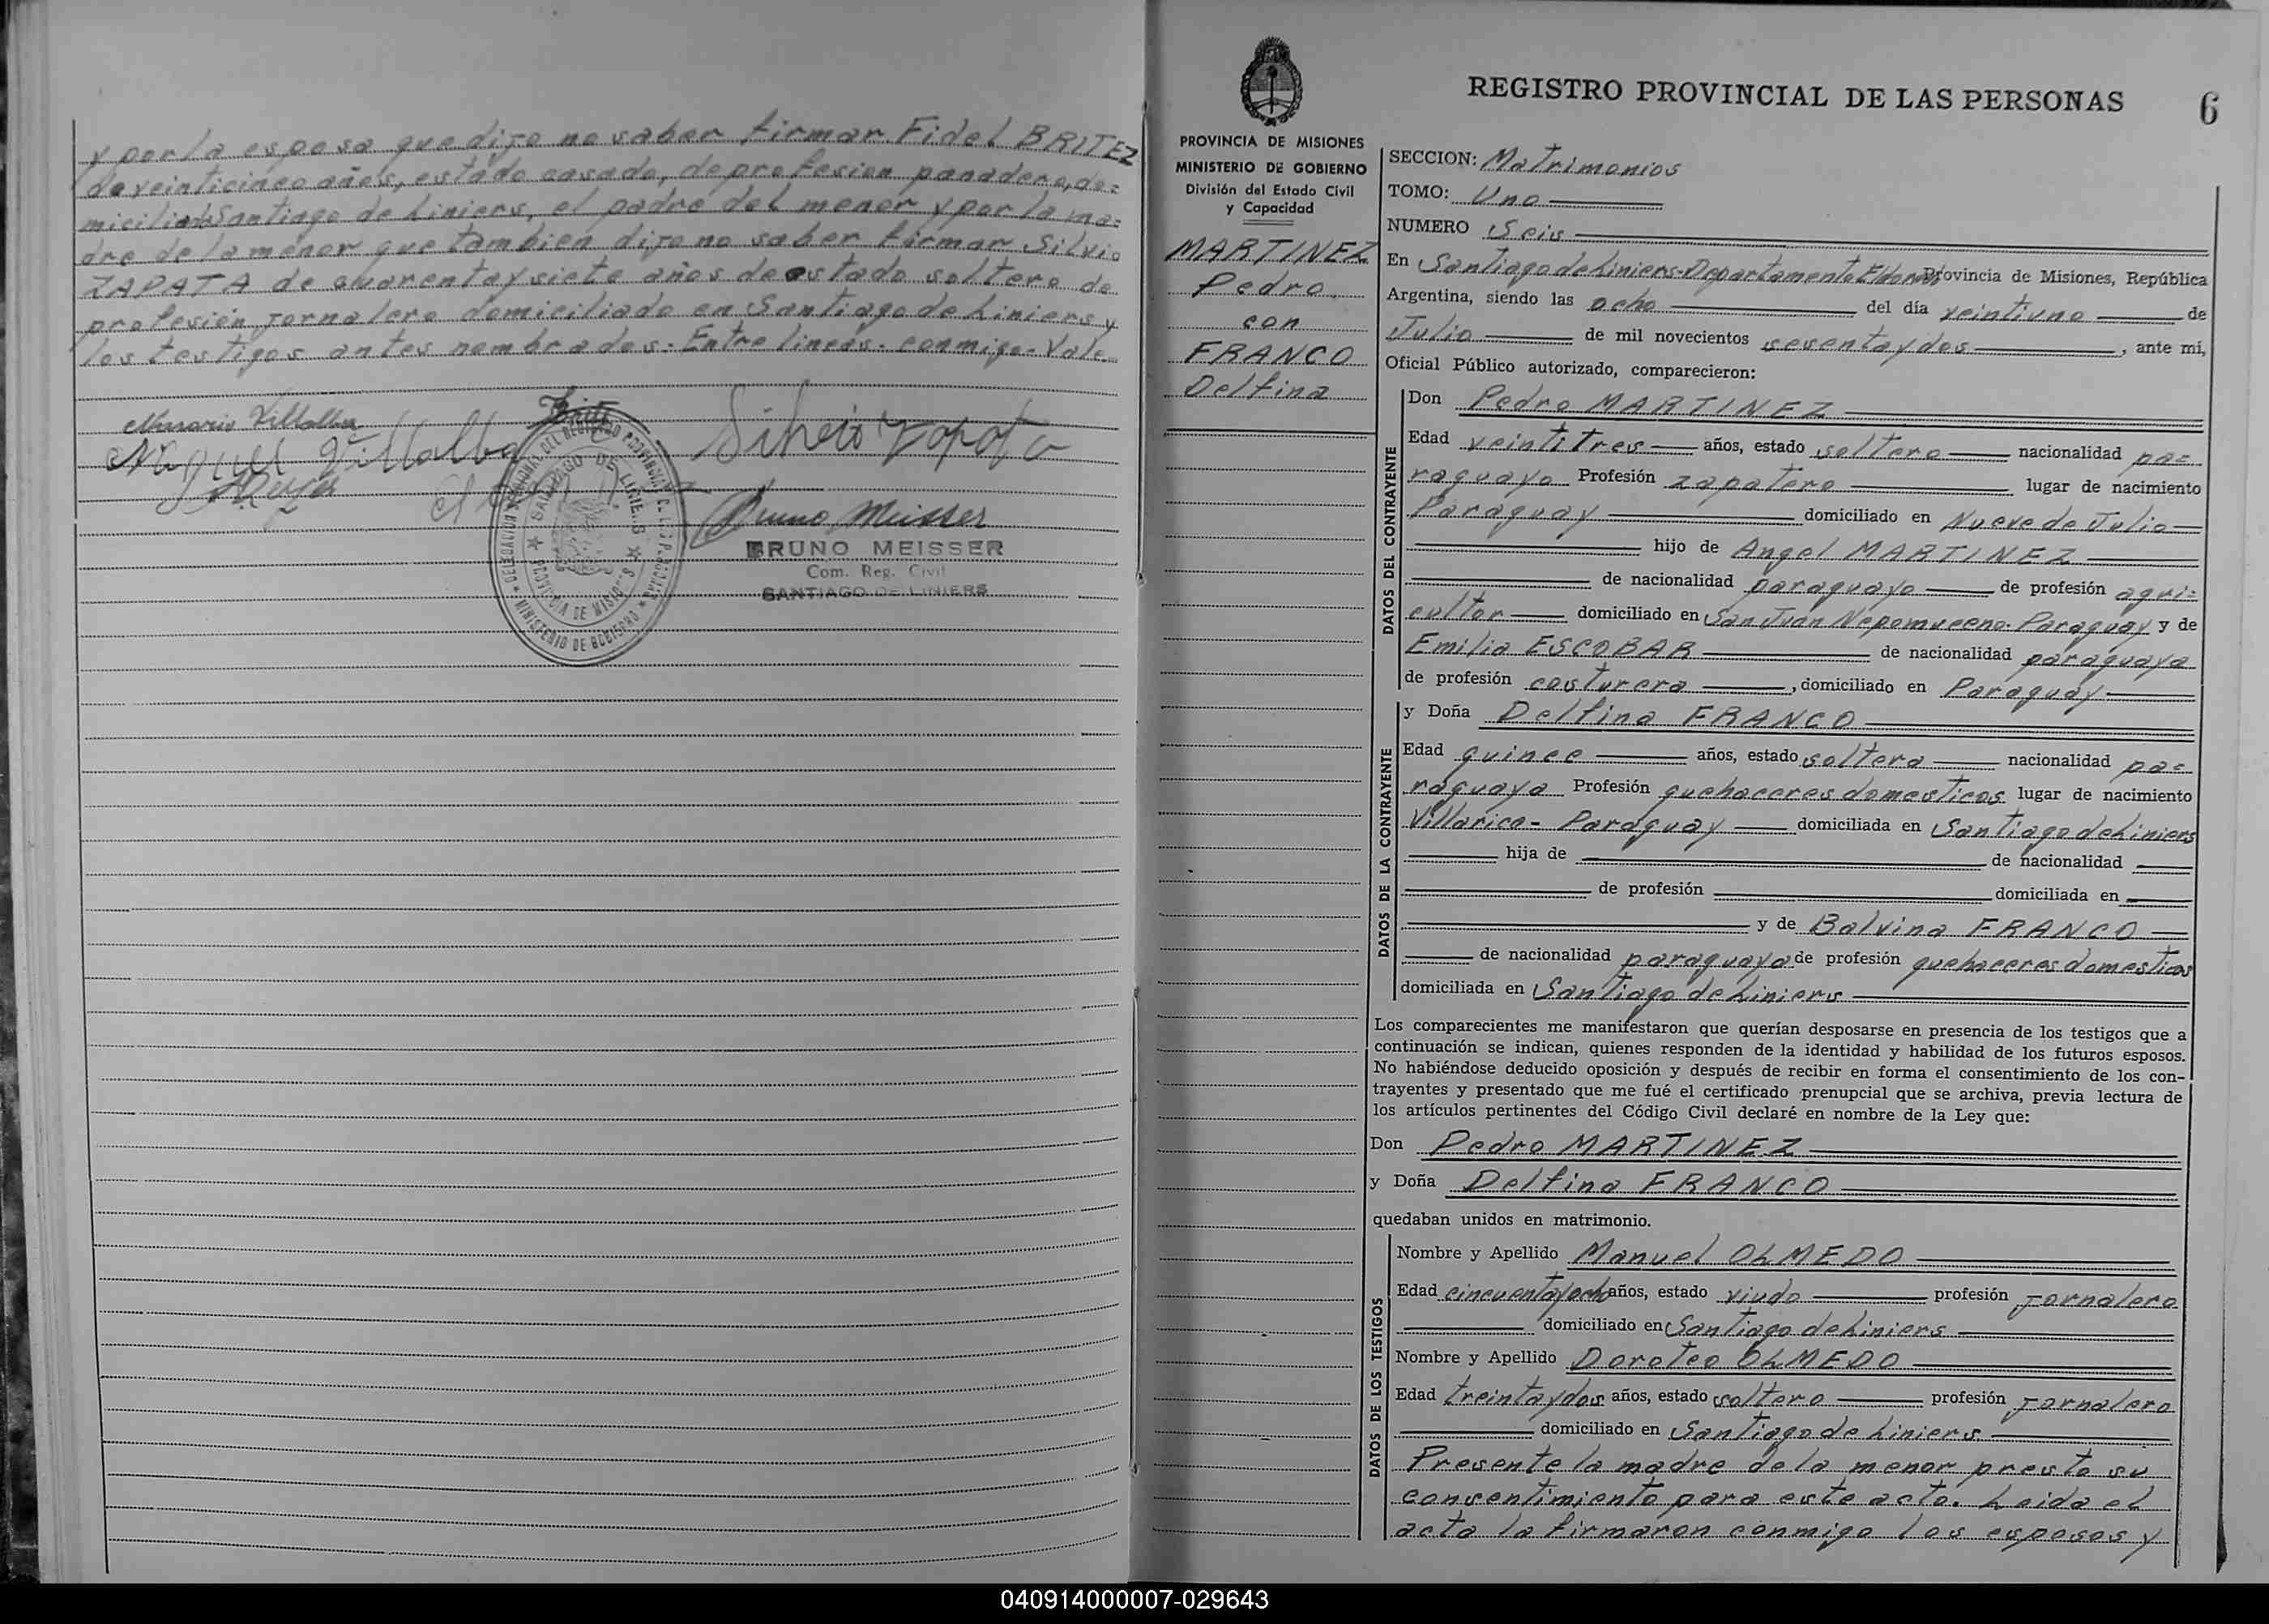 y por la esposa que dijo no saber firmar Fidel BRITEZ
de veinticinco años, estado casado, de profesion panadero, do=
miciliado Santiago de Liniers, el padre del menor y por la ma=
dre de la menor que tambien dijo no saber firmar Silvio
ZAPATA de cuarenta y siete años de estado soltero de
profesión jornalero domiciliado en Santiago de Liniers y
los testigos antes nombrados. Entre lineas. conmigo. Vale.
Villalba
Miguel Villalba
Silvio Zapata
Bruno Meisser
BRUNO MEISSER
Com. Reg. Civil
SANTIAGO DE LINIERS
MINISTERIO DE GOBIERNO
SANTIAGO DE LINIERS
PROVINCIA DE MISIONES
REGISTRO PROVINCIAL DE LAS PERSONAS
6
PROVINCIA DE MISIONES
MINISTERIO DE GOBIERNO
División del Estado Civil
y Capacidad
MARTINEZ
Pedro
con
FRANCO
Delfina
SECCION: Matrimonios
TOMO: Uno
NUMERO Seis
En Santiago de Liniers-Departamento Eldorado Provincia de Misiones, República
Argentina, siendo las ocho del día veintiuno de
Julio de mil novecientos sesenta y dos, ante mí,
Oficial Público autorizado, comparecieron:
DATOS DEL CONTRAYENTE
Don Pedro MARTINEZ
Edad veintitres años, estado soltero nacionalidad pa=
raguayo Profesión zapatero lugar de nacimiento
Paraguay domiciliado en Nueve de Julio
hijo de Angel MARTINEZ
de nacionalidad paraguayo de profesión agri=
cultor domiciliado en San Juan Nepomuceno. Paraguay y de
Emilia ESCOBAR de nacionalidad paraguaya
de profesión costurera, domiciliado en Paraguay
DATOS DE LA CONTRAYENTE
y Doña Delfina FRANCO
Edad quince años, estado soltera nacionalidad pa=
raguaya Profesión quehaceres domesticos lugar de nacimiento
Villarica- Paraguay domiciliada en Santiago de Liniers
hija de de nacionalidad
de profesión domiciliada en
y de Balvina FRANCO
de nacionalidad paraguaya de profesión quehaceres domesticos
domiciliada en Santiago de Liniers
Los comparecientes me manifestaron que querían desposarse en presencia de los testigos que a
continuación se indican, quienes responden de la identidad y habilidad de los futuros esposos.
No habiéndose deducido oposición y después de recibir en forma el consentimiento de los con-
trayentes y presentado que me fué el certificado prenupcial que se archiva, previa lectura de
los artículos pertinentes del Código Civil declaré en nombre de la Ley que:
Don Pedro MARTINEZ
y Doña Delfina FRANCO
quedaban unidos en matrimonio.
DATOS DE LOS TESTIGOS
Nombre y Apellido Manuel OLMEDO
Edad cincuenta y ocho años, estado viudo profesión jornalero
domiciliado en Santiago de Liniers
Nombre y Apellido Doroteo OLMEDO
Edad treinta y dos años, estado soltero profesión jornalero
domiciliado en Santiago de Liniers
Presente la madre de la menor presta su
consentimiento para este acto. Leida el
acta la firmaron conmigo los esposos y
040914000007-029643